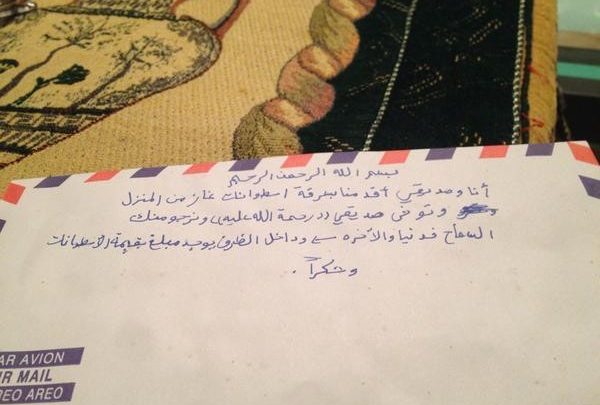 بسم الله الرحمن الرحيم
أنا وصديقي أقدمنا بسرقة اسطوانات غاز من المنزل
وتوفى صديقي (رحمة الله عليه) ونرجو منك
السماح فدنيا والآخره وداخل الظرف يوجد مبلغ بقيمة الأسطوانات
وشكراً .
PAR AVION
AIR MAIL
CORREO AREO